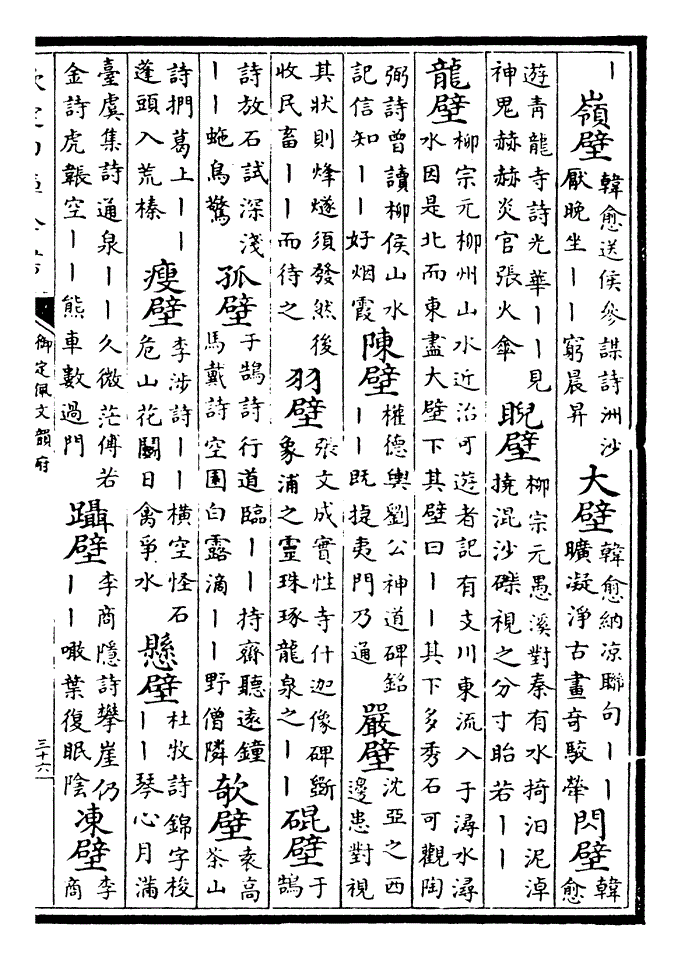 丨嶺壁韓愈送侯參謀詩洲沙厭晚坐丨丨窮晨昇大壁韓愈納凉聯句丨丨曠凝淨古畫奇駮犖閃壁韓愈
遊青龍寺詩光華丨丨見神鬼赫赫炎官張火傘睨壁柳宗元愚溪對秦有水掎汨泥淖撓混沙礫視之分寸眙若丨丨
龍壁柳宗元柳州山水近治可遊者記有支川東流入于潯水潯水因是北而東盡大壁下其壁曰丨丨其下多秀石可觀陶
弼詩曾讀柳侯山水記信知丨丨好烟霞陳壁權德輿劉公神道碑銘丨丨既捷夷門乃通嚴壁沈亞之西邊患對視
其狀則烽燧須發然後收民畜丨丨而待之羽壁張文成實性寺什迦像碑斵象浦之靈珠琢龍泉之丨丨壁于鵠
詩放石試深淺丨丨虵鳥驚孤壁于鵠詩行道臨丨丨持齋聽遠鐘馬戴詩空園白露滴丨丨野僧隣欹壁袁高茶山
詩捫葛上丨丨蓬頭入荒榛瘦壁李涉詩丨丨橫空怪石危山花鬬日禽爭水懸壁杜牧詩錦字梭丨丨琴心月滿
臺虞集詩通泉丨丨久微茫傅若金詩虎韔空丨丨熊車數過門躡壁李商隱詩攀崖仍丨丨噉葉復眠陰凍壁李商
御定佩文韻府
三十六